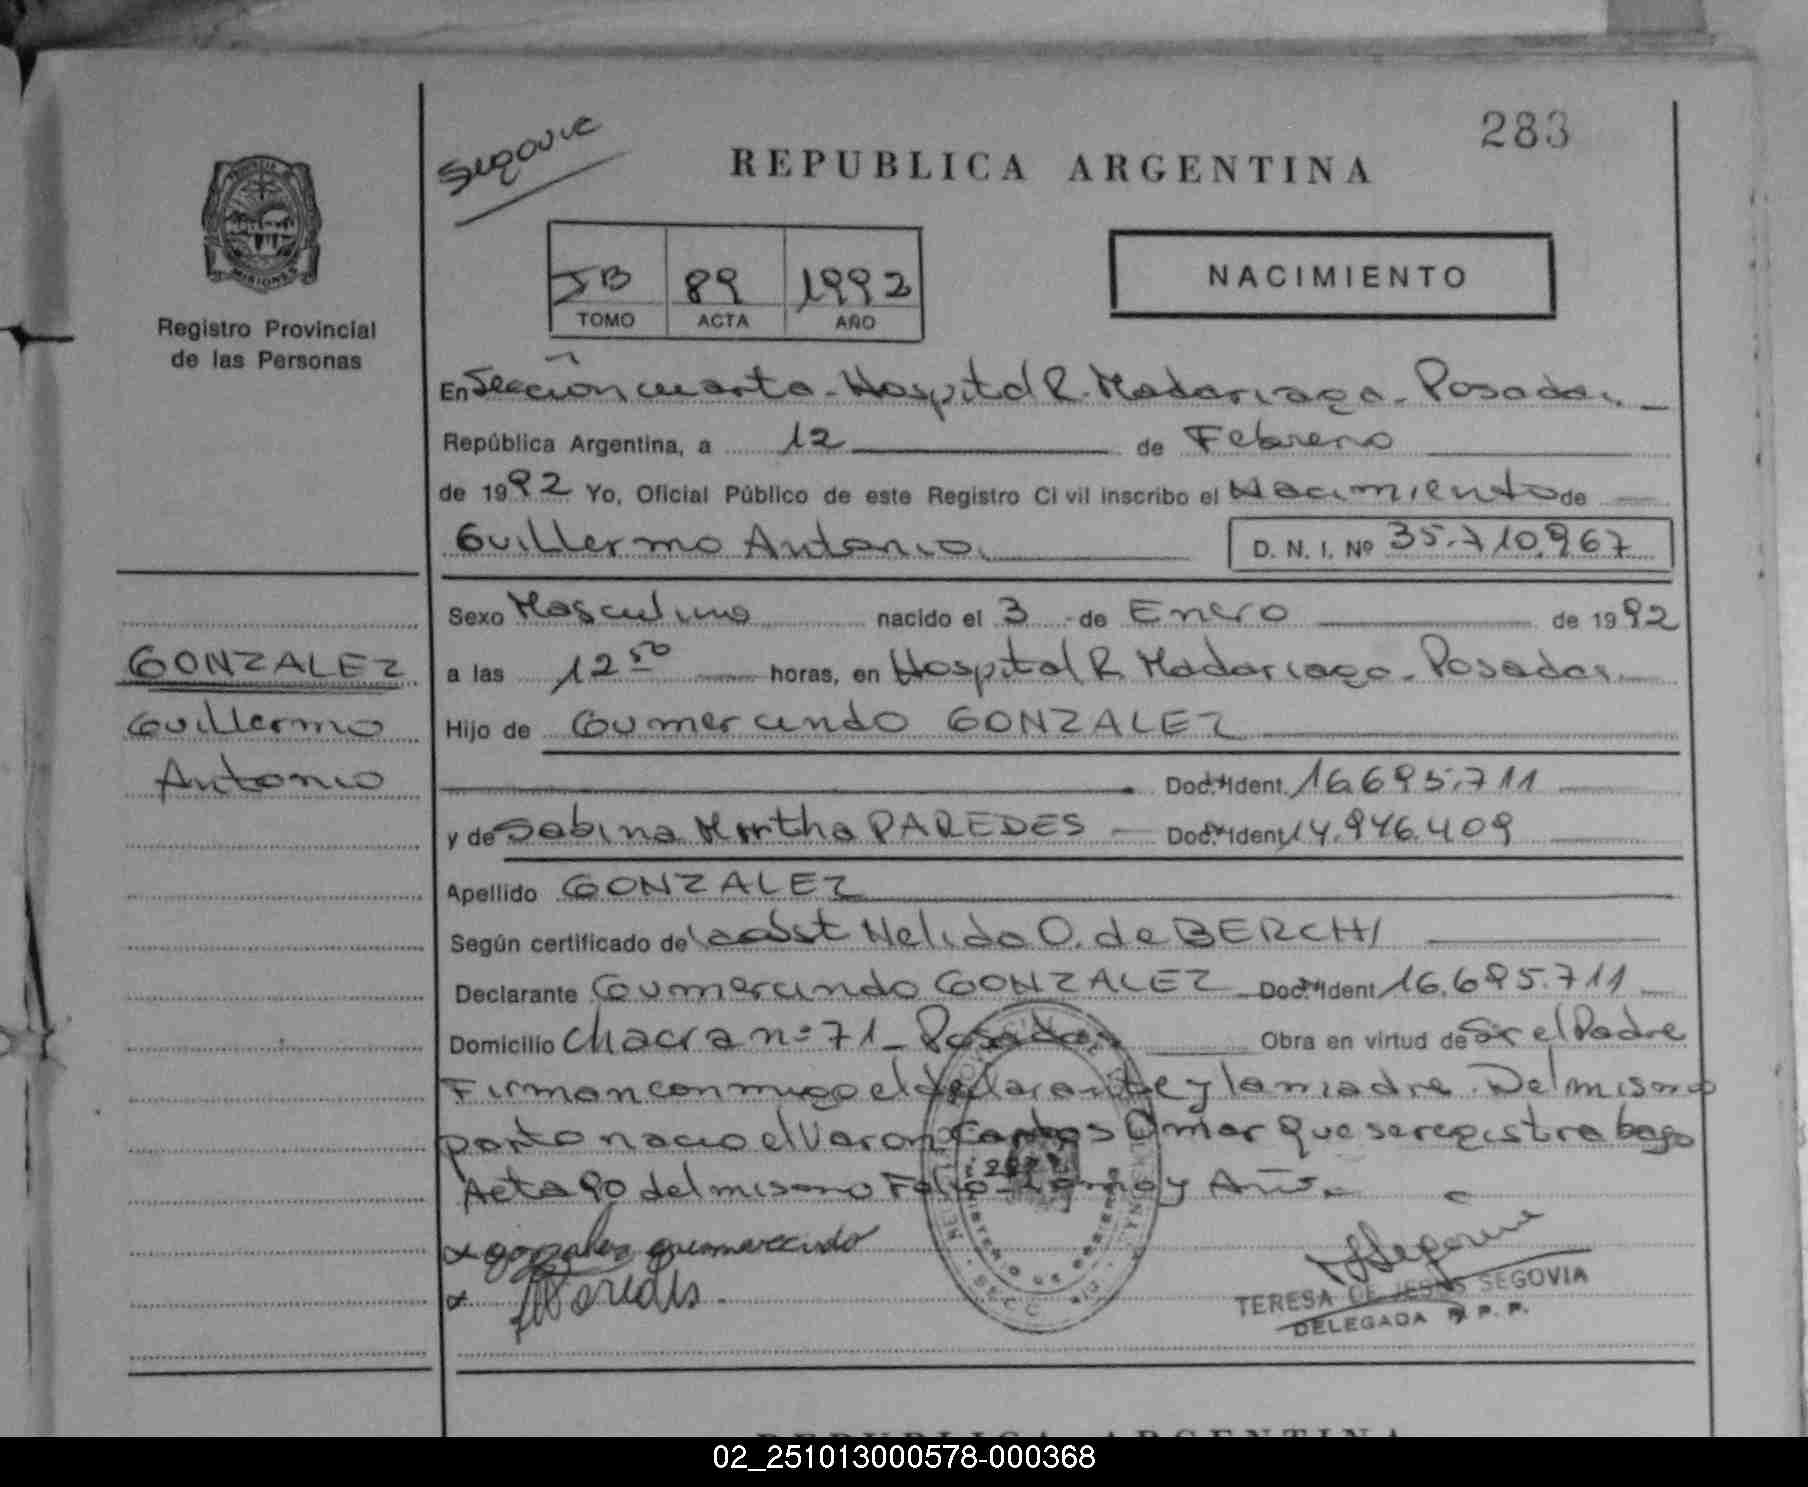 283
Segovia
REPUBLICA ARGENTINA
MISIONES
Registro Provincial
de las Personas
TOMO ACTA AÑO
89 1992
NACIMIENTO
En Sección cuarta - Hospital R. Madariaga - Posadas
República Argentina, a 12 de Febrero
de 1992 Yo, Oficial Público de este Registro Civil inscribo el Nacimiento de
Guillermo Antonio D. N. I. Nº 35.710.967
Sexo Masculino nacido el 3 de Enero de 1992
GONZALEZ
Guillermo
Antonio
a las 12 50 horas, en Hospital R. Madariaga - Posadas
Hijo de Gumercindo GONZALEZ
Doc. Ident. 16.695.711
y de Sabina Mirtha PAREDES Doc. Ident. 14.946.409
Apellido GONZALEZ
Según certificado de la obst Nelida O. de BERCHI
Declarante Gumercindo GONZALEZ Doc. Ident 16.695.711
Domicilio Chacra nº 71 - Posadas Obra en virtud de Ser el Padre
Firman conmigo el declarante y la madre. Del mismo
parto nacio el Varon Carlos Omar que se registra bajo
Acta 90 del mismo Folio Tomo y Año.
x gonzalez gumercindo
x Paredes
TERESA DE JESUS SEGOVIA
DELEGADA R. P. P.
REPUBLICA ARGENTINA
02_251013000578-000368